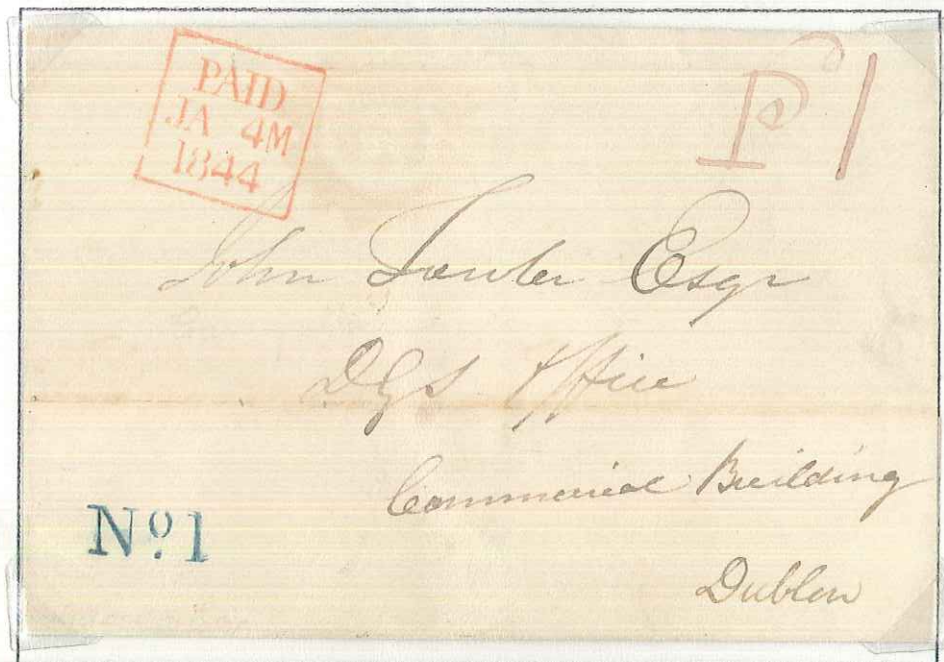 PAID
JA 4M
1844
P 1
John Esqr
Office
Commercial Building
Dublin
No. 1